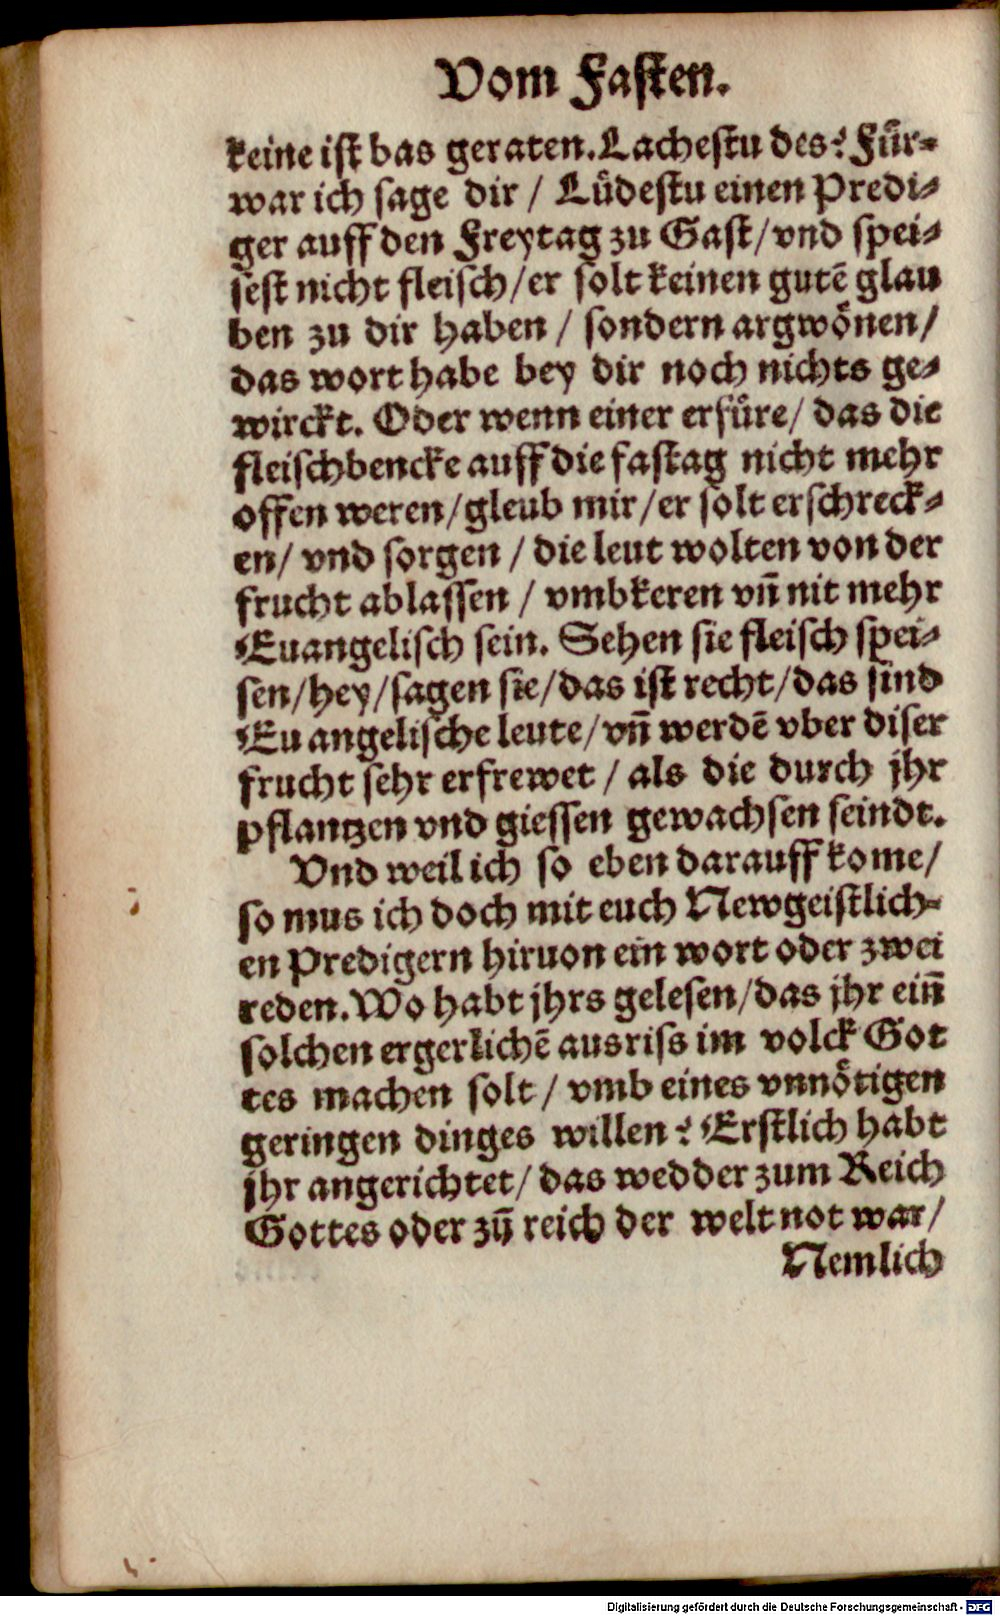 Vom Fasten.
keine ist bas geraten. Lachestu des? Fuͤr-
war ich sage dir / Luͤdestu einen Predi-
ger auff den Freytag zu Gast/ vnd spei-
sest nicht fleisch/ er solt keinen gutē glau
ben zu dir haben / sondern argwoͤnen/
das wort habe bey dir noch nichts ge-
wirckt. Oder wenn einer erfuͤre/ das die
fleischbencke auff die fastag nicht mehr
offen weren/ gleub mir/ er solt erschreck-
en/ vnd sorgen / die leut wolten von der
frucht ablassen / vmbkeren vn̄ nit mehr
Euangelisch sein. Sehen sie fleisch spei-
sen/ hey/ sagen sie/ das ist recht/ das sind
Euangelische leute/ vn̄ werdē vber diser
frucht sehr erfrewet / als die durch jhr
pflantzen vnd giessen gewachsen seindt.
Vnd weil ich so eben darauff kome/
so mus ich doch mit euch Newgeistlich-
en Predigern hiruon ein wort oder zwei
reden. Wo habt jhrs gelesen/ das jhr ein̄
solchen ergerlichē ausriss im volck Got
tes machen solt / vmb eines vnnoͤtigen
geringen dinges willen? Erstlich habt
jhr angerichtet/ das wedder zum Reich
Gottes oder zū reich der welt not war/
Nemlich
Digitalisierung gefördert durch die Deutsche Forschungsgemeinschaft - DFG